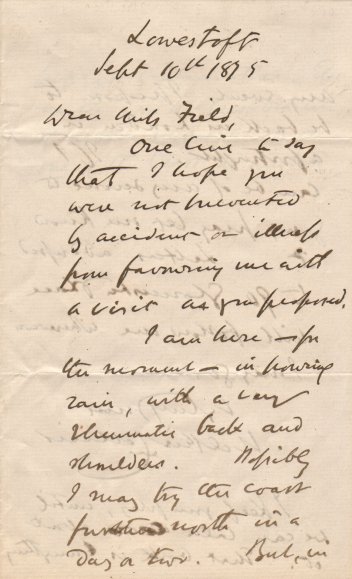 Lowestoft
Sept 10th 1875
Dear Miss Field,
One line to say
that I hope you
were not prevented
by accident or illness
from favouring me with
a visit as you proposed.
I am here — for
the moment — in pouring
rain, with a very
rheumatic back and
shoulders. Possibly
I may try the coast
further north in a
day or two. But, in